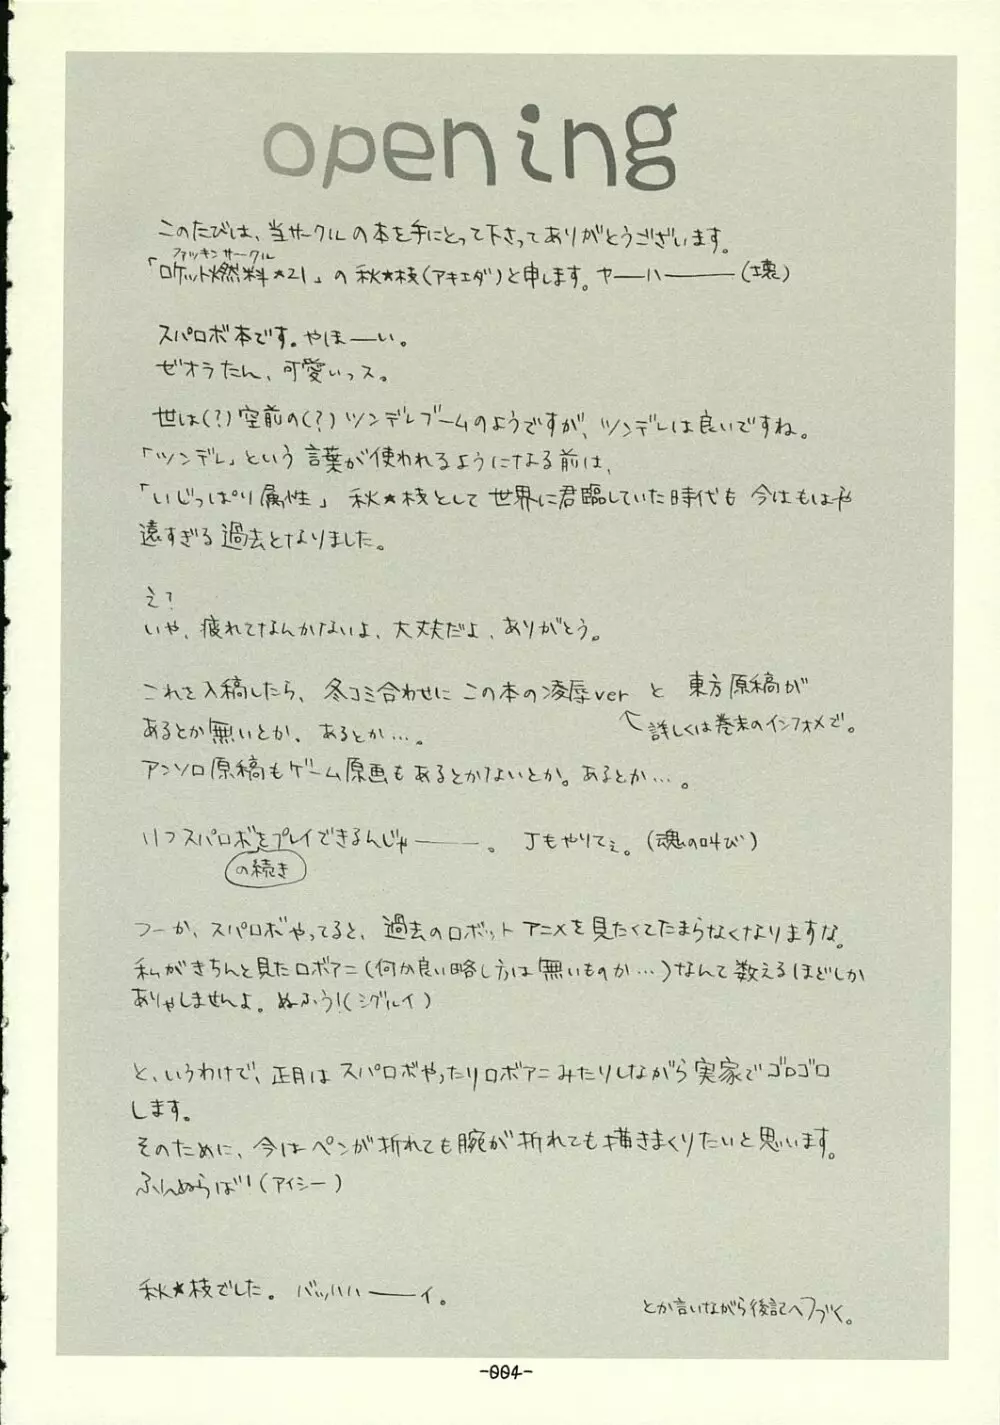 opening
このたびは、当サークルの本を手にとって下さってありがとうございます。
ファッキンサークル
「ロケット燃料★21」の秋★枝(アキエダ)と申します。ヤーハー(壊)
スパロボ本です。やほーい。
ゼオラたん、可愛いっス。
世は(?)空前の(?)ツンデレブームのようですが、ツンデレは良いですね。
「ツンデレ」という言葉が使われるようになる前は、
「いじっぱり属性」秋★枝として世界に君臨していた時代も今はもはや
遠すぎる過去となりました。
え?
いや、疲れてなんかないよ、大丈夫だよ、ありがとう。
これを入稿したら、冬コミ合わせにこの本の凌辱verと東方原稿が
↖詳しくは巻末のインフォメで。
あるとか無いとか、あるとか…。
アンソロ原稿もゲーム原画もあるとかないとか。あるとか…。
いつスパロボをプレイできるんじゃー。Jもやりてぇ。(魂の叫び)
の続き
つーか、スパロボやってると、過去のロボットアニメを見たくてたまらなくなりますな。
私がきちんと見たロボアニ(何か良い略し方は無いものか…)なんて数えるほどしか
ありゃしませんよ。ぬふぅ!(シグルイ)
と、いうわけで、正月はスパロボやったりロボアニみたりしながら実家でゴロゴロ
します。
そのために、今はペンが折れても腕が折れても描きまくりたいと思います。
ふんぬらば!(アイシー)
秋★枝でした。バッハハーイ。
とか言いながら後記へつづく。
-004-